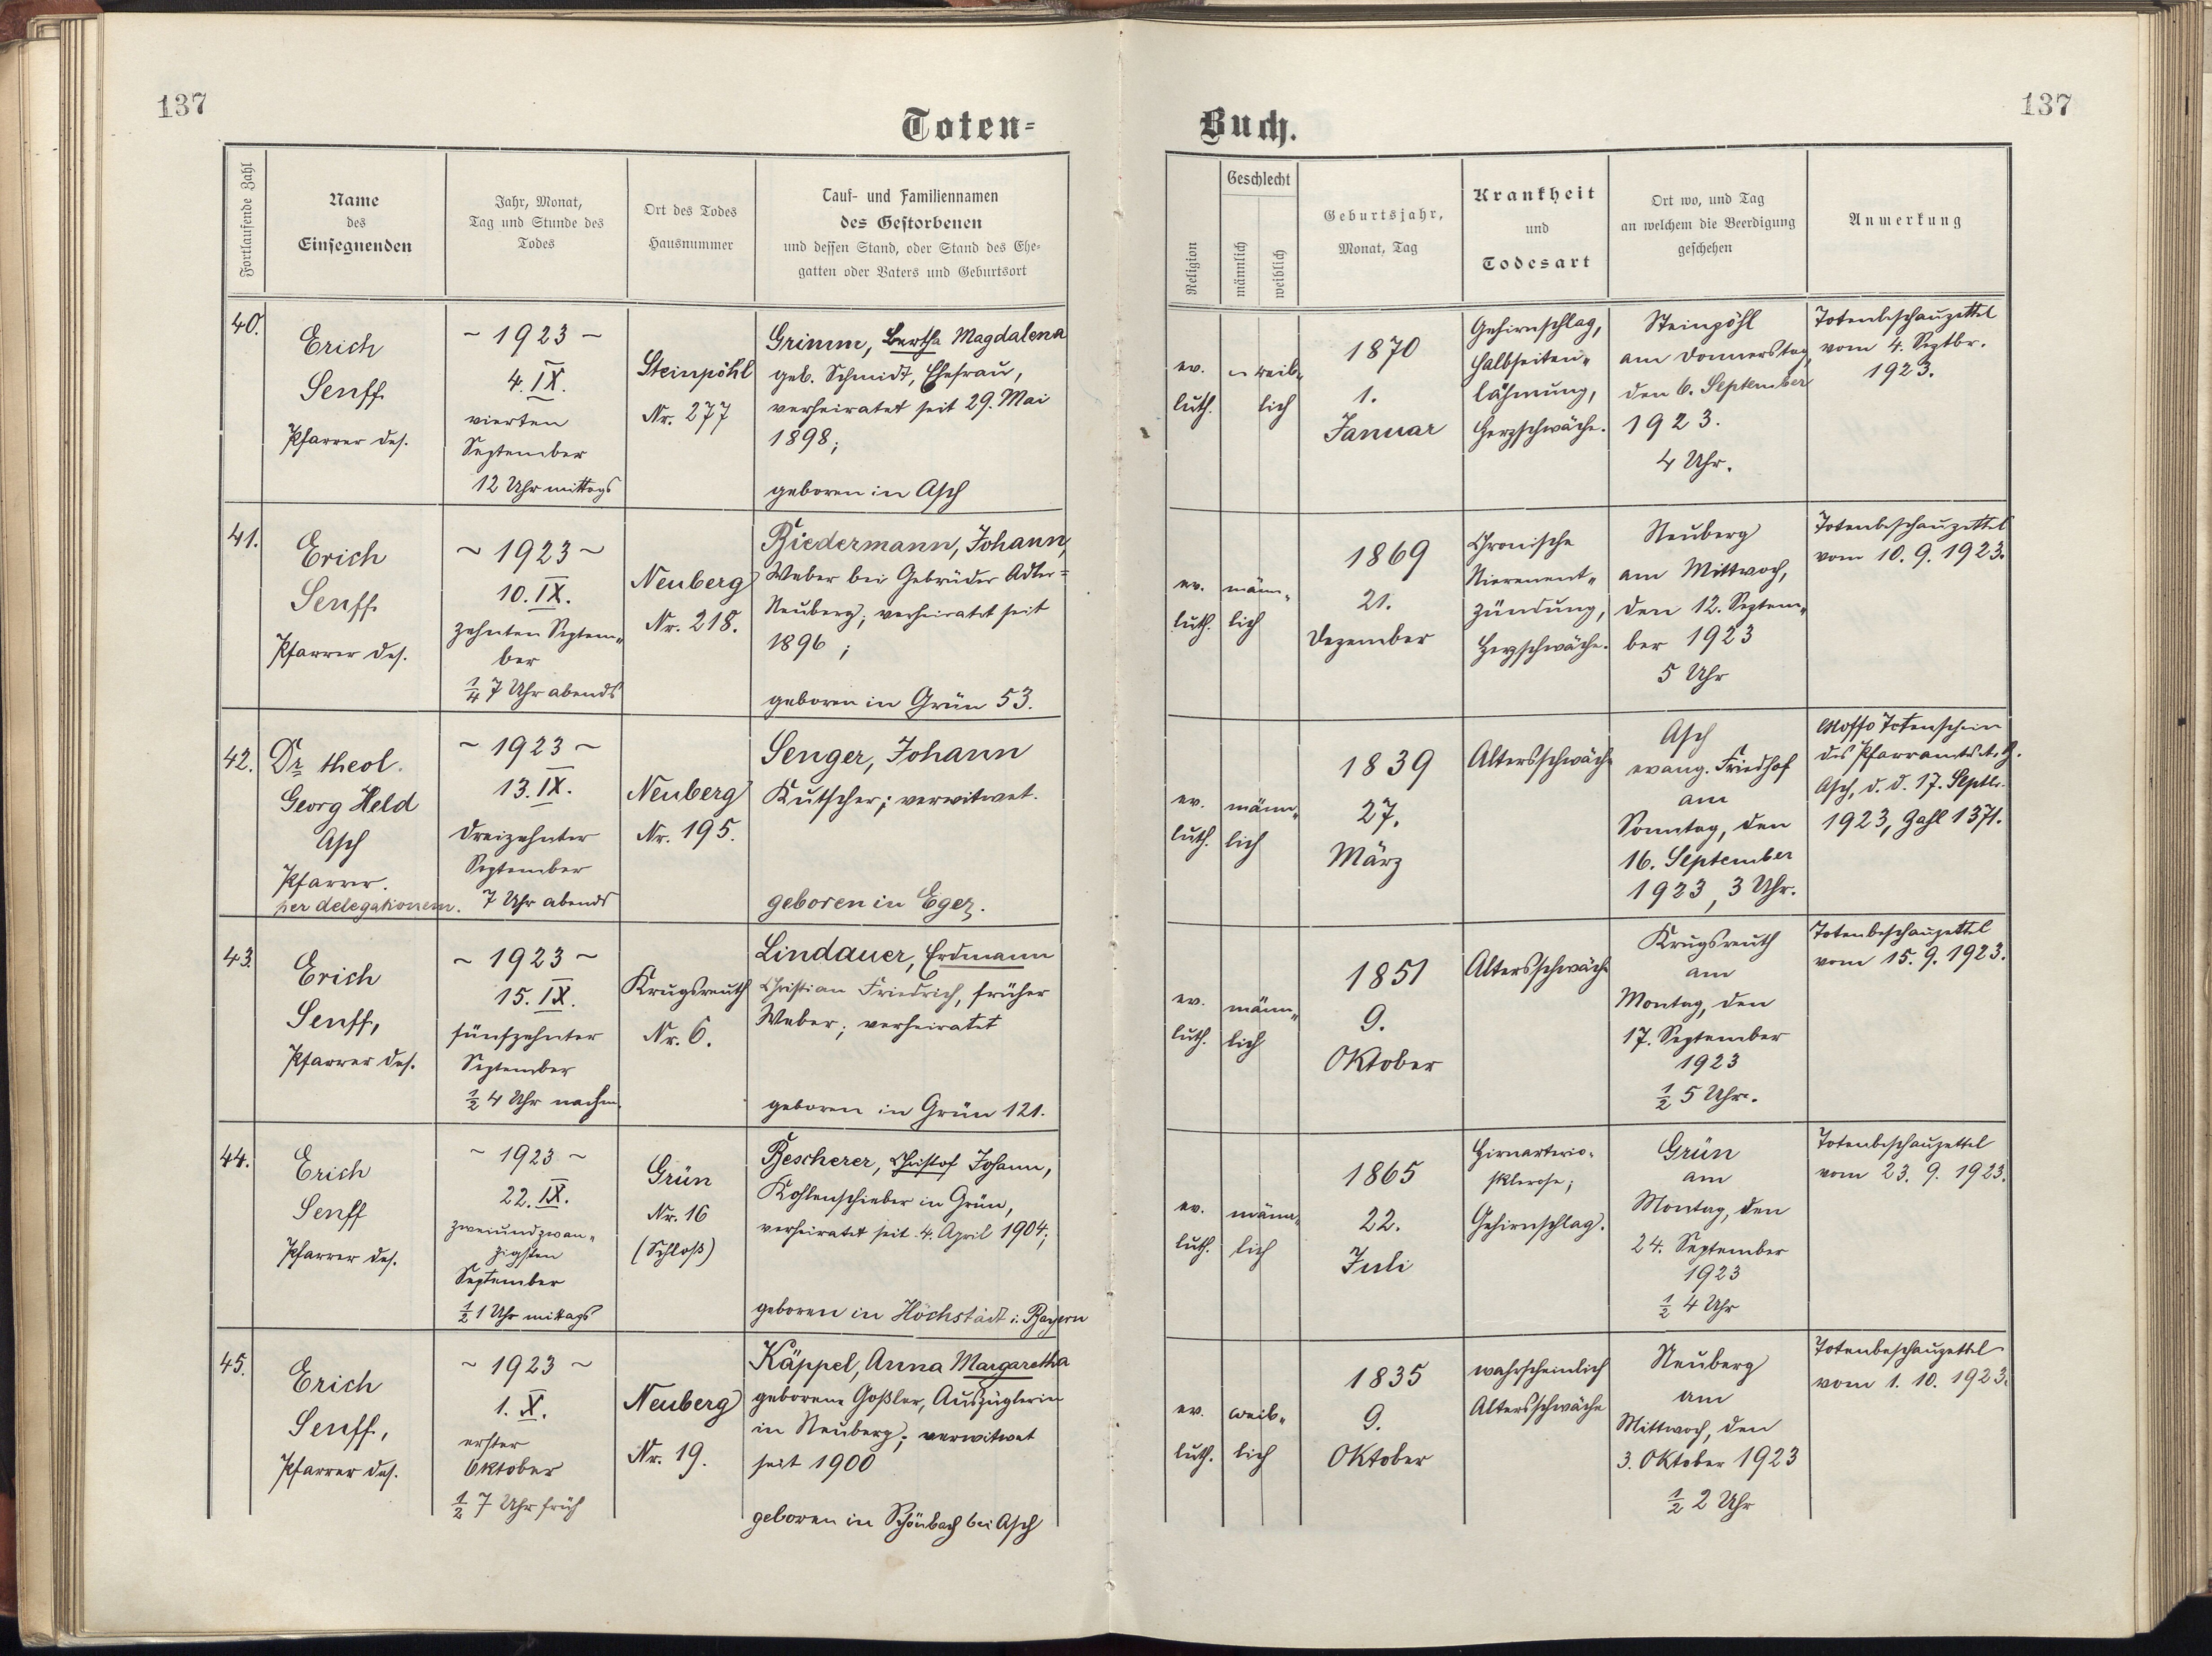 137
137
Toten=
Buch.
Fortlaufende Zahl
Name
des
Einsegnenden
Jahr, Monat,
Tag und Stunde des
Todes
Ort des Todes
Hausnummer
Tauf- und Familiennamen
des Gestorbenen
und dessen Stand, oder Stand des Ehe-
gatten oder Vaters und Geburtsort
Religion
Geschlecht
männlich
weiblich
Geburtsjahr,
Monat, Tag
Krankheit
und
Todesart
Ort wo, und Tag
an welchem die Beerdigung
geschehen
Anmerkung
40.
Erich
Senff
Pfarrer des.
~ 1923 ~
4. IX.
vierten
September
12 Uhr mittags
Steinpöhl
Nr. 277
Grimm, Bertha Magdalena
geb. Schmidt, Ehefrau,
verheiratet seit 29. Mai
1898;
geboren in Asch
ev.
luth.
weib-
lich
1870
1.
Januar
Gehirnschlag,
halbseiten-
lähmung,
Herzschwäche.
Steinpöhl
am Donnerstag,
den 6. September
1923.
4 Uhr.
Totenbeschauzettel
vom 4. Septbr.
1923.
41.
Erich
Senff
Pfarrer des.
~ 1923 ~
10. IX.
zehnten Septem-
ber
1/4 7 Uhr abends
Neuberg
Nr. 218.
Biedermann, Johann,
Weber bei Gebrüder Adler=
Neuberg; verheiratet seit
1896;
geboren in Grün 53.
ev.
luth.
männ-
lich
1869
21.
Dezember
Chronische
Nierenent-
zündung,
Herzschwäche.
Neuberg
am Mittwoch,
den 12. Septem-
ber 1923
5 Uhr
Totenbeschauzettel
vom 10. 9. 1923.
42.
Dr theol.
Georg Held
Asch
Pfarrer.
per delegationem.
~ 1923 ~
13. IX.
dreizehnter
September
7 Uhr abends
Neuberg
Nr. 195.
Senger, Johann
Kutscher; verwitwet.
geboren in Eger.
ev.
luth.
männ-
lich
1839
27.
März
Altersschwäche
Asch
evang. Friedhof
am
Sonntag, den
16. September
1923, 3 Uhr.
Totenschein
des Pfarramtes
Asch, d. d. 17. Septb.
1923, Zahl 1371.
43.
Erich
Senff,
Pfarrer des.
~ 1923 ~
15. IX.
fünfzehnter
September
1/2 4 Uhr nachm.
Krugsreuth
Nr. 6.
Lindauer, Erdmann
Christian Friedrich, früher
Weber; verheiratet
geboren in Grün 121.
ev.
luth.
männ-
lich
1851
9.
Oktober
Altersschwäche
Krugsreuth
am
Montag, den
17. September
1923
1/2 5 Uhr.
Totenbeschauzettel
vom 15. 9. 1923.
44.
Erich
Senff
Pfarrer des.
~ 1923 ~
22. IX.
zweiundzwan-
zigsten
September
1/2 1 Uhr mittags
Grün
Nr. 16
(Schloß)
Bescherer, Christof Johann,
Kohlenschieber in Grün,
verheiratet seit 4. April 1904;
geboren in Höchstädt i. Bayern
ev.
luth.
männ-
lich
1865
22.
Juli
Hirnarterio-
sklerose;
Gehirnschlag.
Grün
am
Montag, den
24. September
1923
1/2 4 Uhr
Totenbeschauzettel
vom 23. 9. 1923.
45.
Erich
Senff,
Pfarrer des.
~ 1923 ~
1. X.
erster
Oktober
1/2 7 Uhr früh
Neuberg
Nr. 19.
Käppel, Anna Margaretha
geborene Goßler, Auszüglerin
in Neuberg; verwitwet
seit 1900
geboren in Schönbach bei Asch
ev.
luth.
weib-
lich
1835
9.
Oktober
wahrscheinlich
Altersschwäche
Neuberg
am
Mittwoch, den
3. Oktober 1923
1/2 2 Uhr
Totenbeschauzettel
vom 1. 10. 1923.